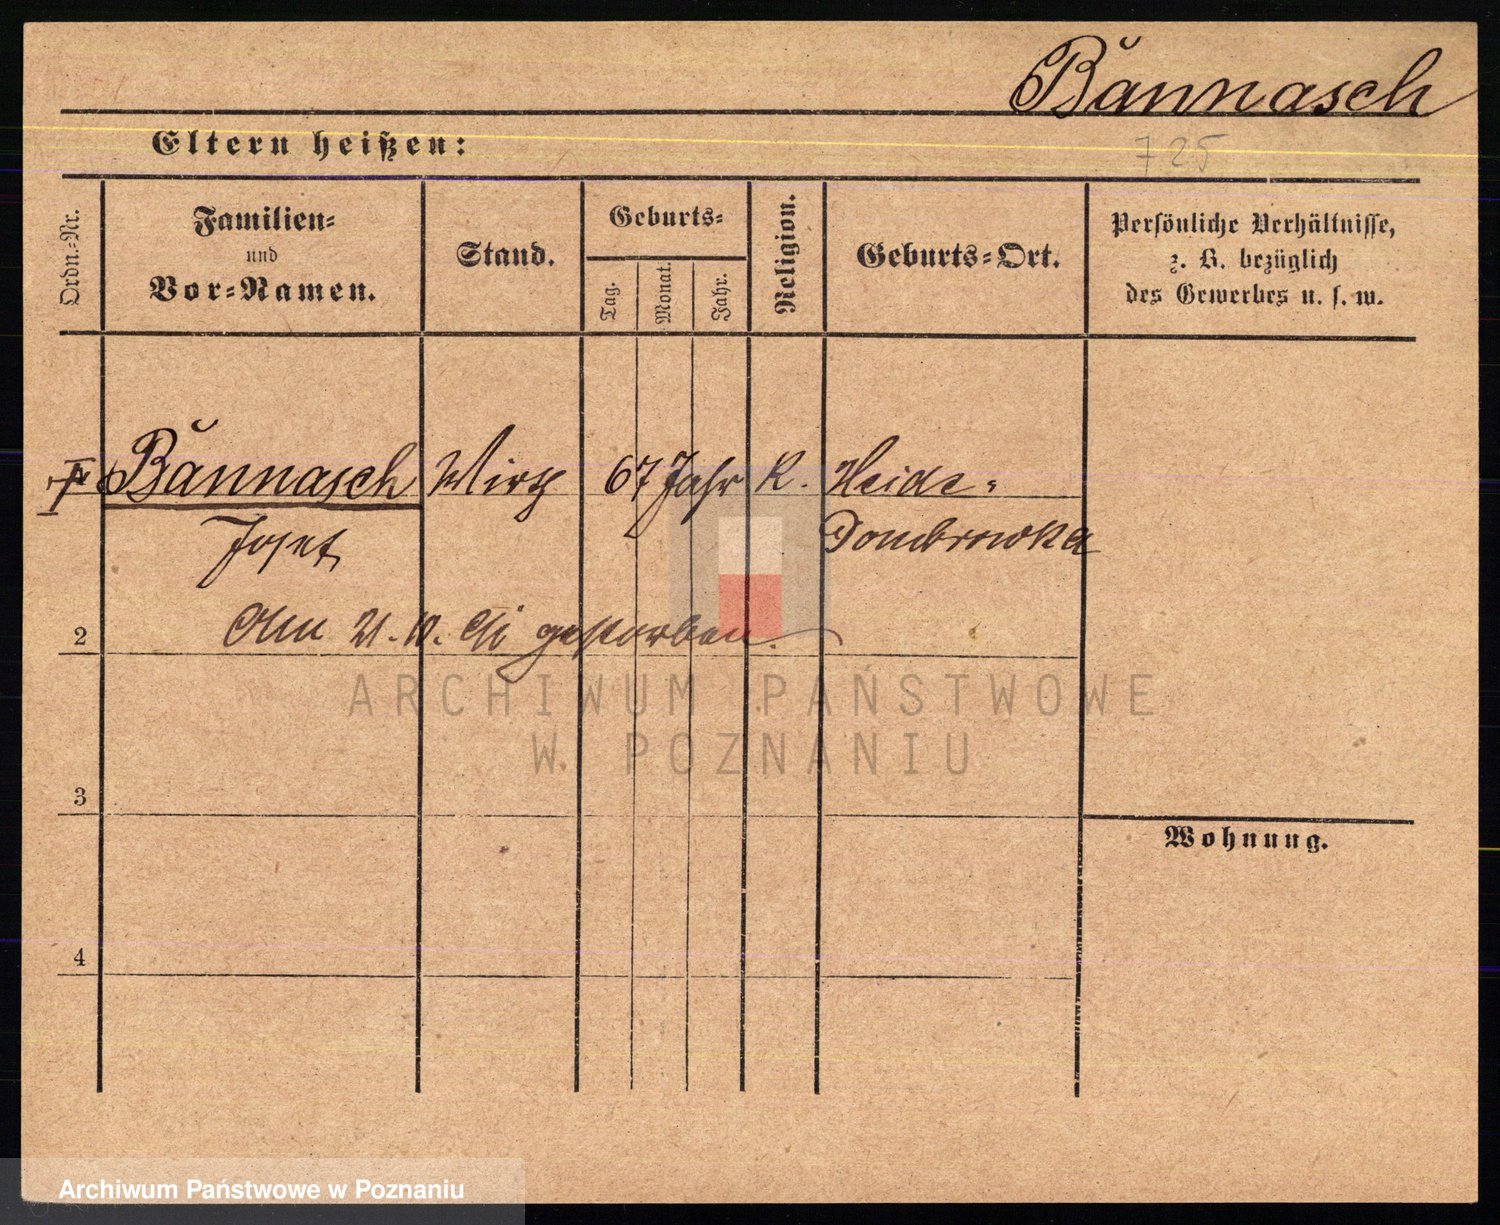 Bănnasch
Eltern heißen:
725
Ordn.-Nr.
Familien-
und
Vor-Namen.
Stand.
Geburts-
Tag.
Monat.
Jahr.
Religion.
Geburts-Ort.
Persönliche Verhältnisse,
z. B. bezüglich
des Gewerbes u. s. w.
Bănnasch Wirth 67 Jahr K. Heide-
Josef Dombrowka
2 Am 21. 10. gestorben.
ARCHIWUM PAŃSTWOWE
W POZNANIU
3
Wohnung.
4
Archiwum Państwowe w Poznaniu